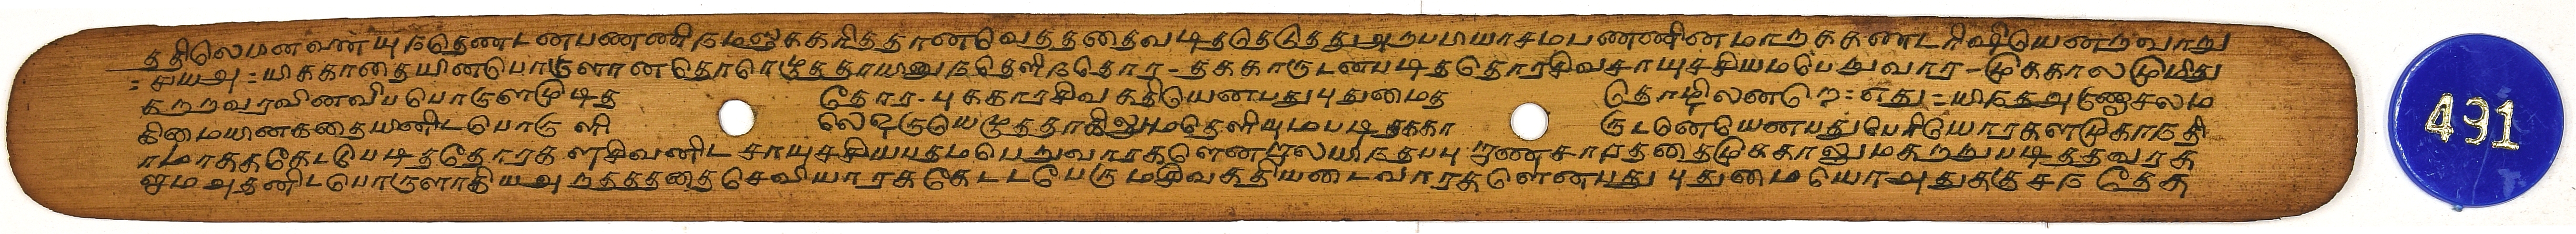 ததிலெமனவணயுநதெணடனபணணிநமஜகககரிததானவெததைவடிததெடுததுஅறுபபியாசமபணணினமாறககணடரிஷியெனறவாறு
சயஅயிககாதையினபொருளானதோரெழுததாயினுநதெளிநதோர - தககாருடனபடிததோரசிவசாயுசசியமபெறுவார - முககாலமுமிது
கறறவரவினவிபபொருளமுடித தோர - புககாரசிவகதியெனபதுபுதுமைத தொழிலனறெ எது யிநதஅருணாசலம
கிமையினகதையினிடபொரு ளி லெஒருயெழுததாகிலுமதெளியுமபடி தககா ருடனெயெனபதுபெரியோரகளமுகாநதி
ரமாகககேடடுபடிததோரகளசிவனிட சாயுசசியபதமபெறுவாரகளெனறலயிநதபபு றாணசாரததைமுககாலுமகறறுபடிததவரக
ளம அதனிடபொருளாகியஅ றததததைசெவியாரககேடடபேருமசிவகதியடைவாரகளெனபது புதுமையொஅதுககுசந தேக